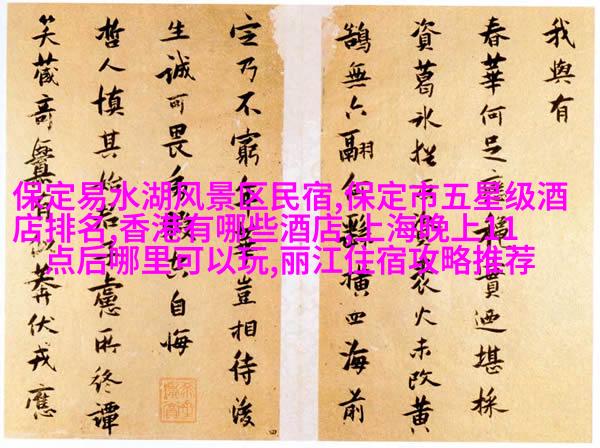 保定易水湖风景区民宿,保定市五星级酒
店排名,香港有哪些酒店,上海晚上11
点后哪里可以玩,丽江住宿攻略推荐
我與有
春華何足迺堪採
資葛冰資裘火未改黃
鵠無六翮四海前
定乃不窮豈相待後
生誠可畏自悔
哲人慎其始君子慮所終譚
笑藏奇釁莽伏戎應